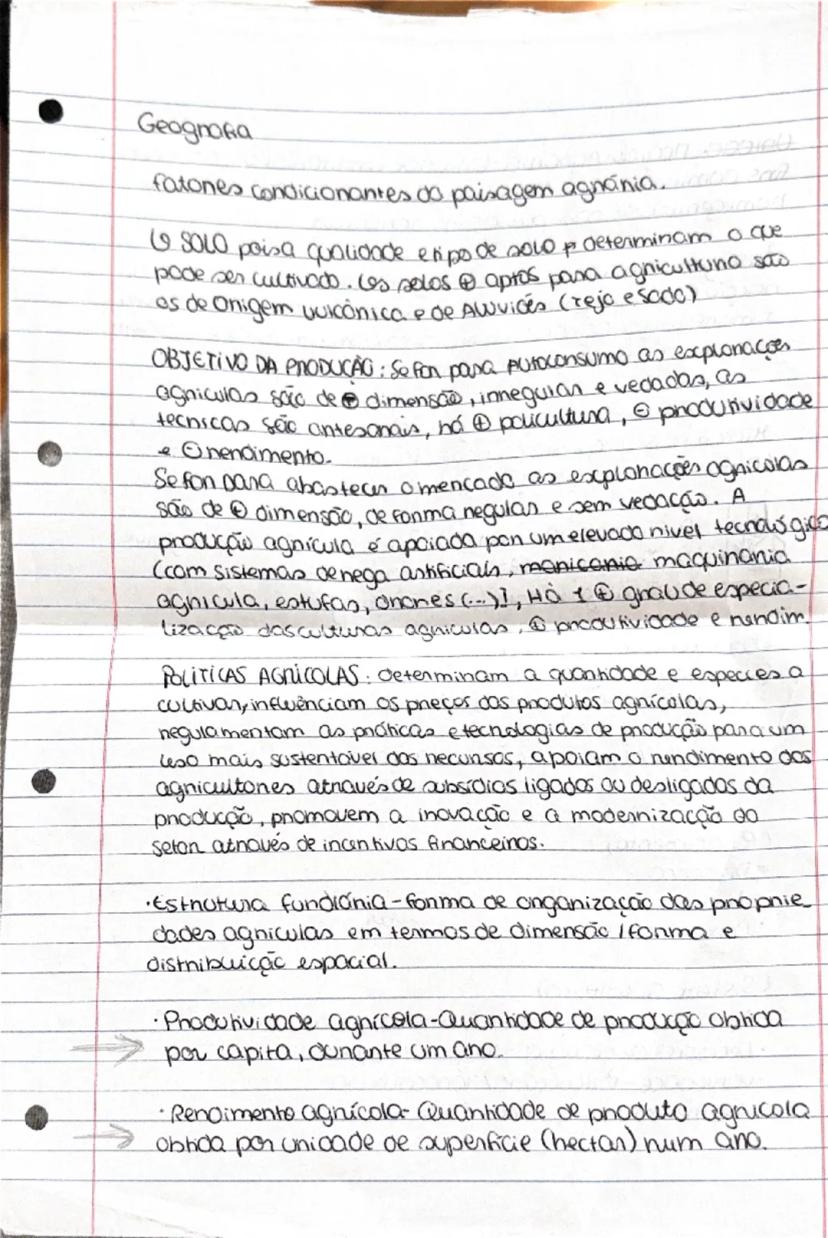 Geografia
fatores condicionantes da paisagem agrária.
↳ SOLO pois a qualidade e tipo de solo determinam o que
pode ser cultivado. Os solos ⊕ aptos para agricultura são
os de Origem vulcânica e de Aluviões (Tejo e Sado)
OBJETIVO DA PRODUÇÃO: Se for para Autoconsumo as explorações
agriculas são de ⊖ dimensão, irregular e vedadas, as
técnicas são artesanais, há ⊕ policultura, ⊖ produtividade
e ⊖ rendimento.
Se for para abastecer o mercado as explorações agricolas
são de ⊕ dimensão, de forma regular e sem vedação. A
produção agrícula é apoiada por um elevado nivel tecnológico
(com sistemas de rega artificiais, maquinaria
agricula, estufas, drones (...)], Há 1 ⊕ grau de especia-
lização das culturas agriculas, ⊕ produtividade e rendim.
POLITICAS AGRÍCOLAS: determinam a quantidade e especies a
cultivar, influênciam os preços dos produtos agrícolas,
regulamentam as práticas e tecnologias de produção para um
uso mais sustentável dos recursos, apoiam o rendimento dos
agricultores através de subsídios ligados ou desligados da
produção, promovem a inovação e a modernização do
setor através de incentivos financeiros.
·Estrutura fundiária-forma de organização das proprie
dades agriculas em termos de dimensão / forma e
distribuição espacial.
·Produtividade agrícola-Quantidade de produção obtida
→ por capita, durante um ano.
·Rendimento agrícola- Quantidade de produto agricola
→ obtida por unidade de superfície (hectar) num ano.